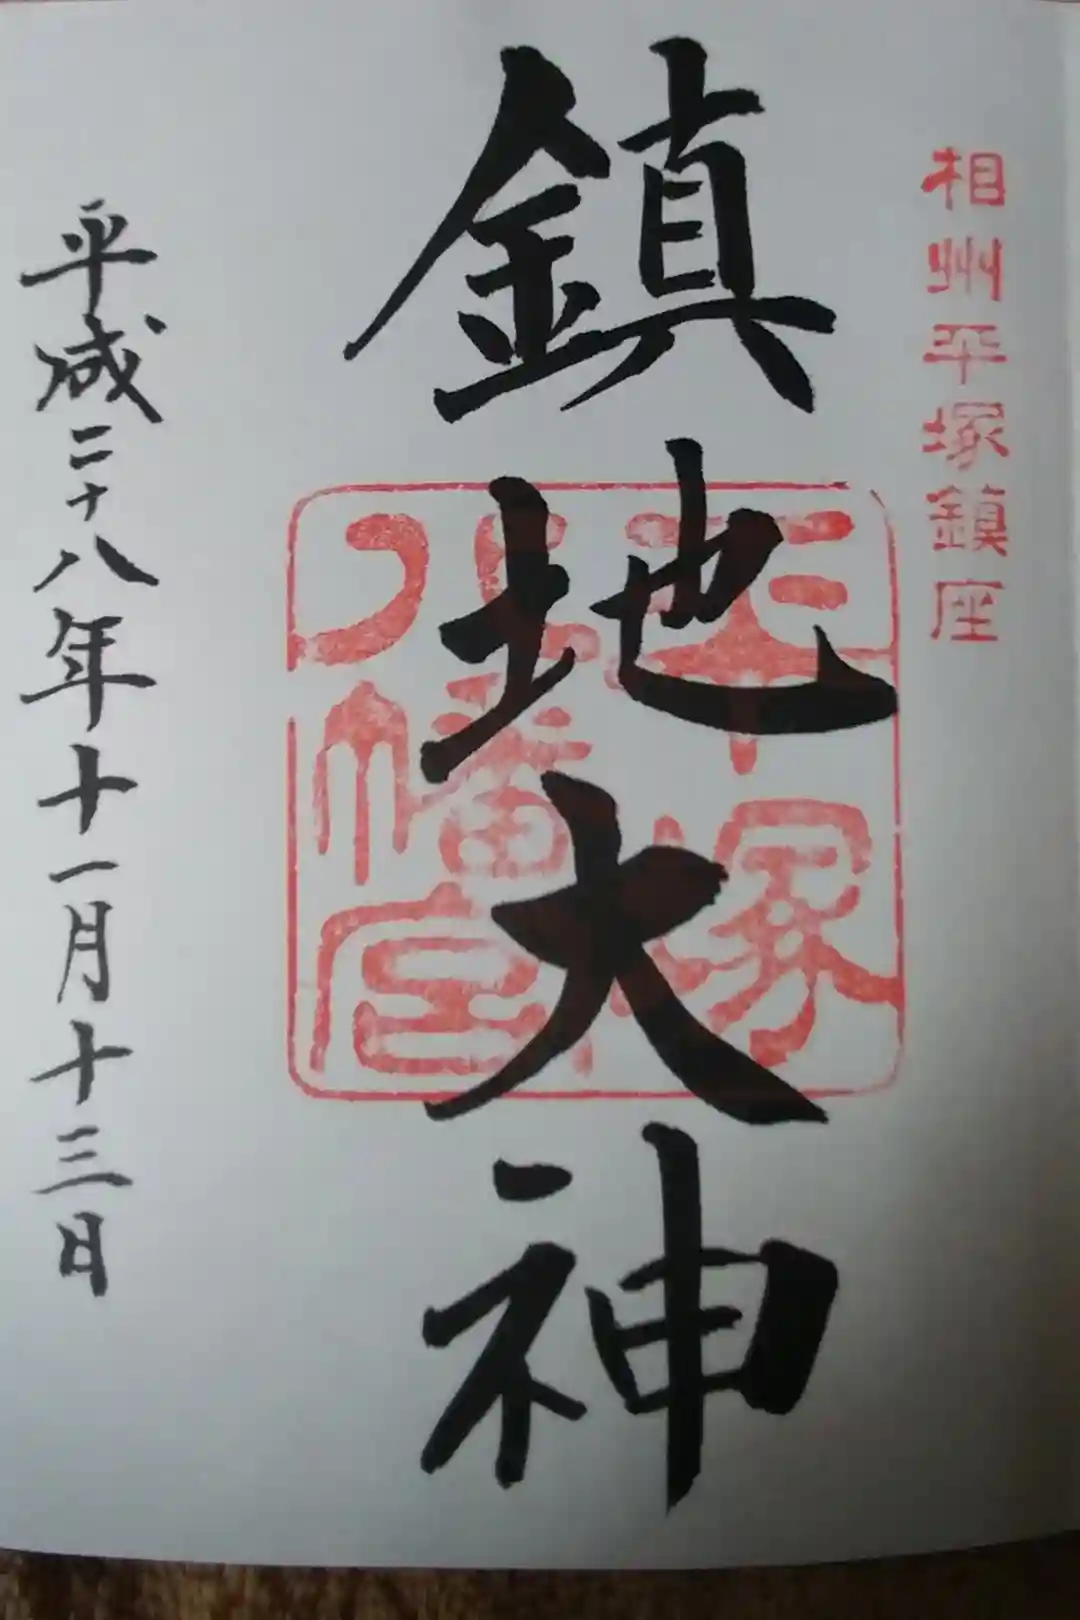 相州平塚鎮座
鎮地大神
平塚
八幡宮
平成二十八年十一月十三日